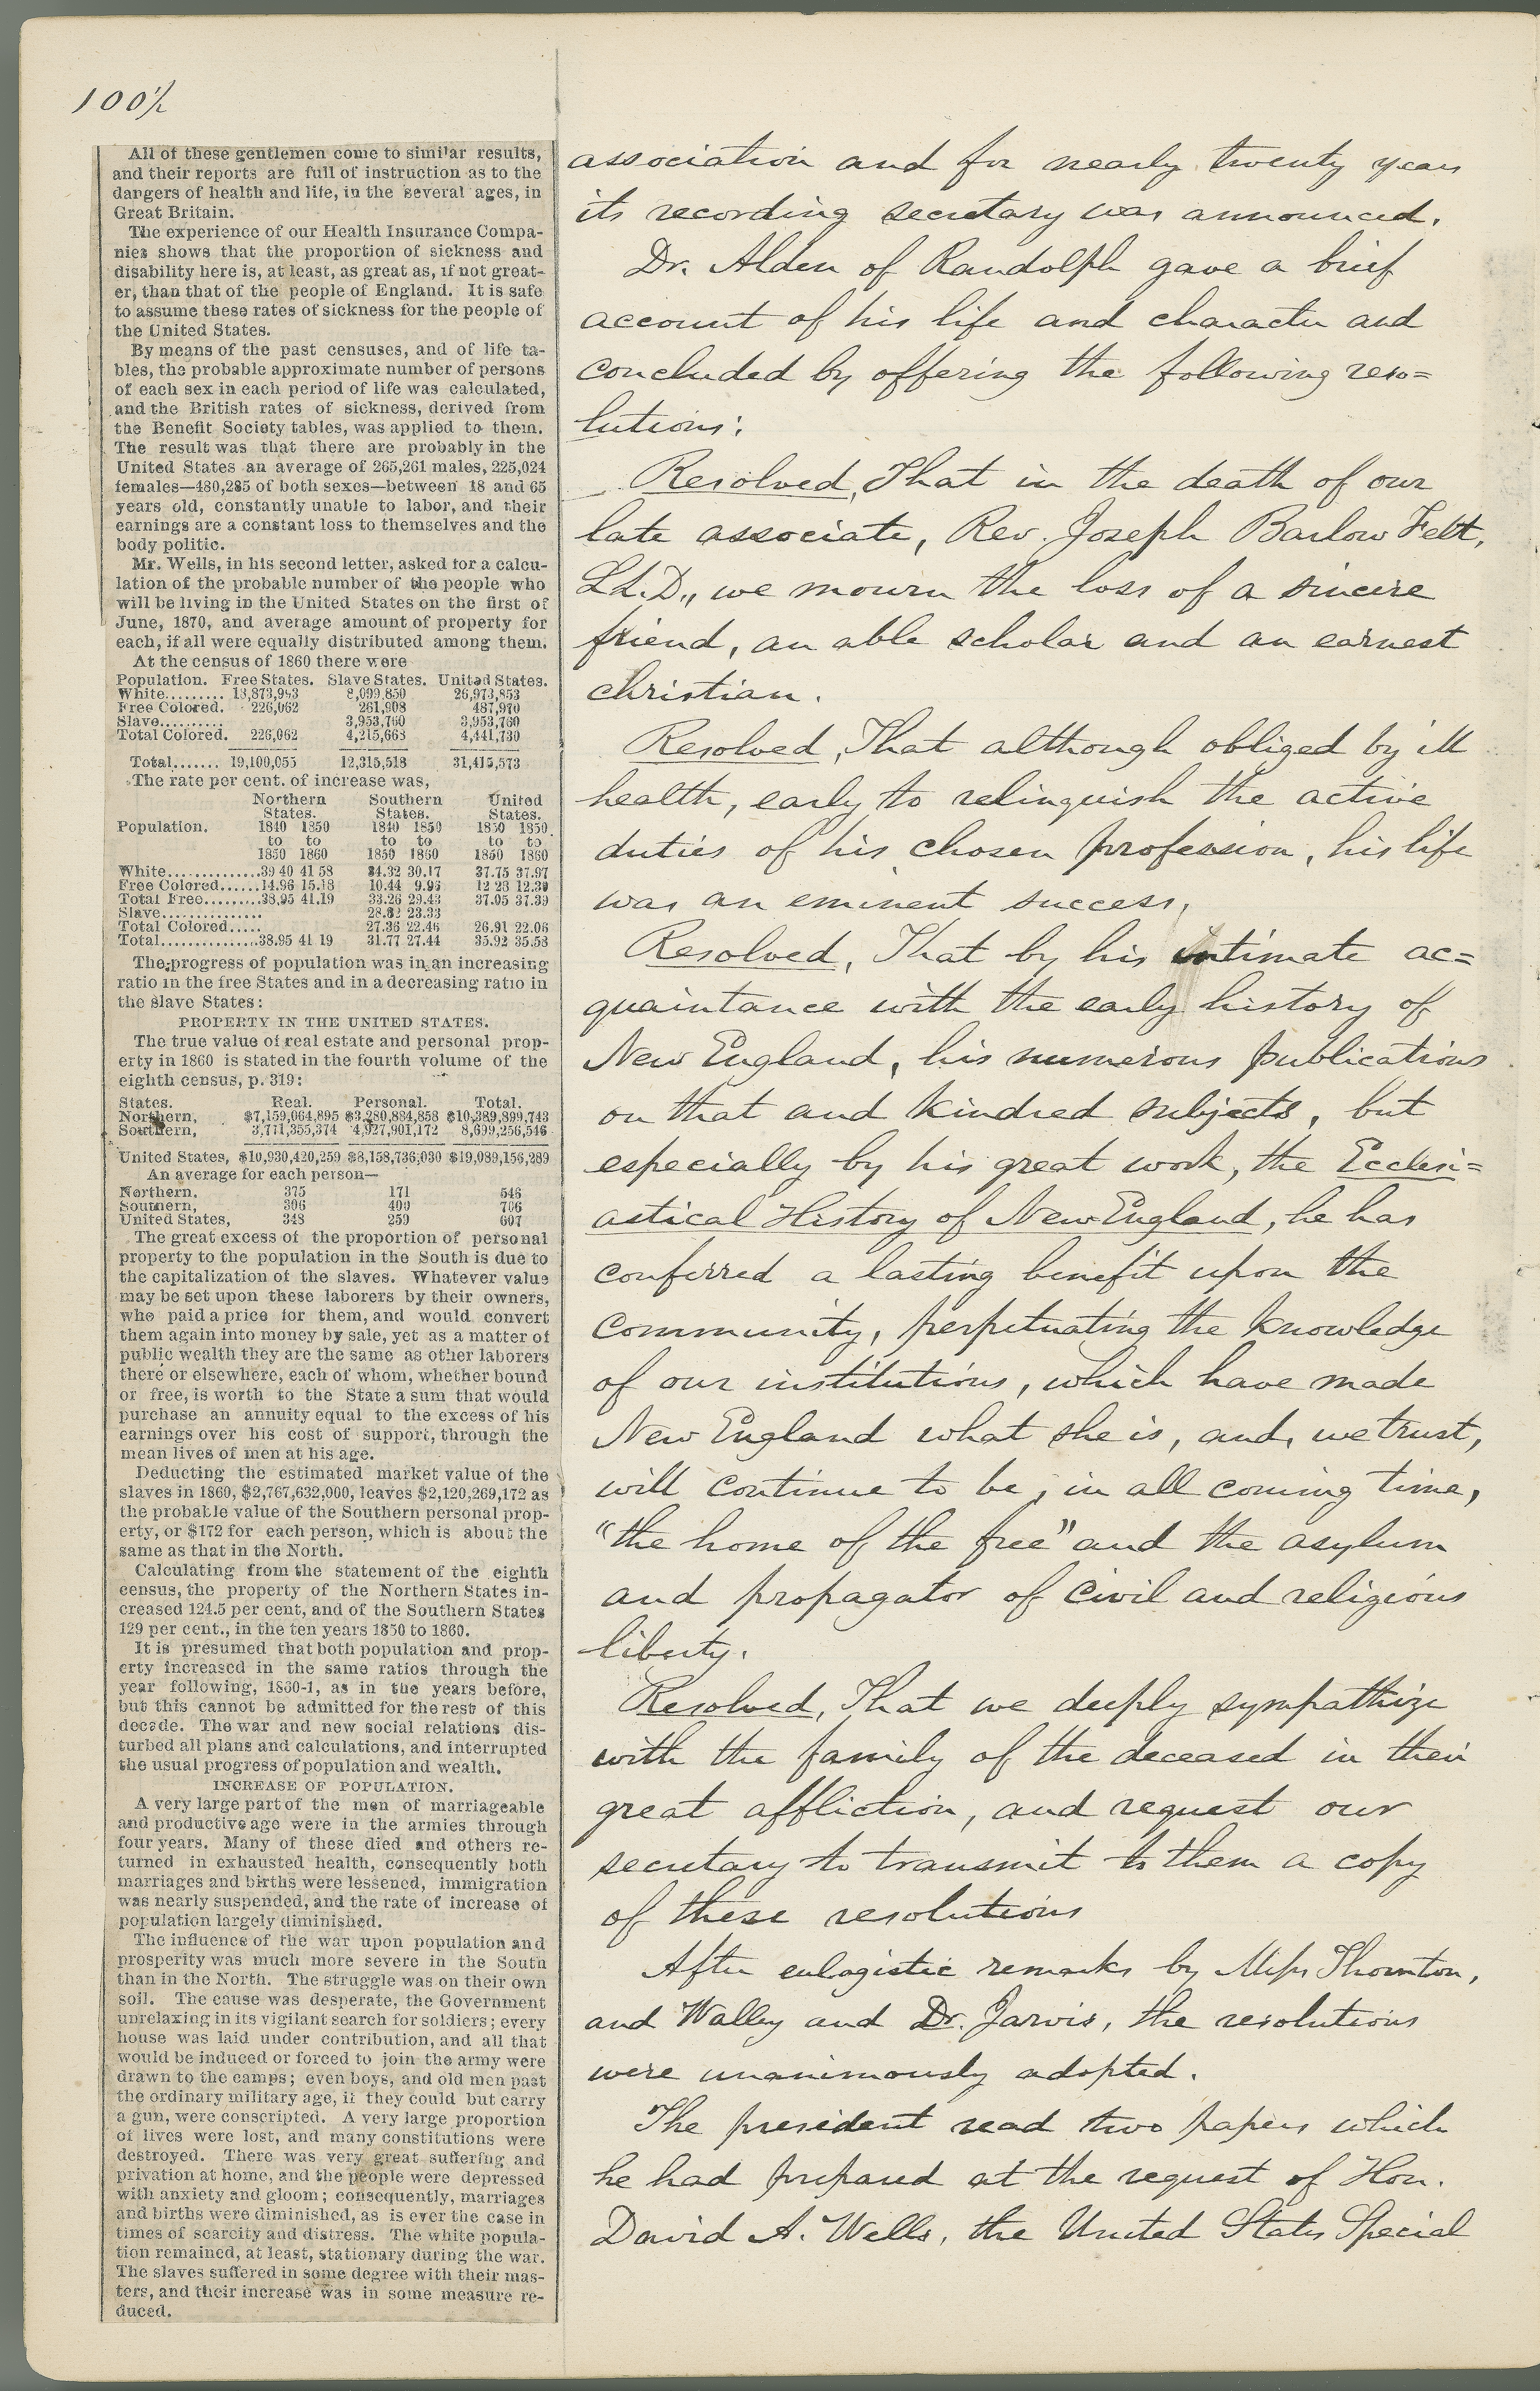 100½
All of these gentlemen come to similar results,
and their reports are full of instruction as to the
dangers of health and life, in the several ages, in
Great Britain.
The experience of our Health Insurance Compa-
nies shows that the proportion of sickness and
disability here is, at least, as great as, if not great-
er, than that of the people of England. It is safe
to assume these rates of sickness for the people of
the United States.
By means of the past censuses, and of life ta-
bles, the probable approximate number of persons
of each sex in each period of life was calculated,
and the British rates of sickness, derived from
the Benefit Society tables, was applied to them.
The result was that there are probably in the
United States an average of 265,261 males, 225,024
females—480,285 of both sexes—between 18 and 65
years old, constantly unable to labor, and their
earnings are a constant loss to themselves and the
body politic.
Mr. Wells, in his second letter, asked for a calcu-
lation of the probable number of the people who
will be living in the United States on the first of
June, 1870, and average amount of property for
each, if all were equally distributed among them.
At the census of 1860 there were
Population. Free States. Slave States. United States.
White......... 18,873,943 8,099,850 26,973,853
Free Colored. 226,062 261,908 487,970
Slave.......... 3,953,760 3,953,760
Total Colored. 226,062 4,215,668 4,441,730
Total....... 19,100,055 12,315,518 31,415,573
The rate per cent. of increase was,
Northern Southern United
States. States. States.
Population. 1840 1850 1840 1850 1850 1850
to to to to to to
1850 1860 1850 1860 1850 1860
White..............39 40 41 58 34.32 30.17 37.75 37.97
Free Colored......14.96 15.18 10.44 9.96 12 23 12.30
Total Free.........38.95 41.19 33.26 29.43 37.05 37.39
Slave............... 28.82 23.33
Total Colored..... 27.36 22.46 26.91 22.06
Total..............38.95 41 19 31.77 27.44 35.92 35.58
The progress of population was in an increasing
ratio in the free States and in a decreasing ratio in
the slave States:
PROPERTY IN THE UNITED STATES.
The true value of real estate and personal prop-
erty in 1860 is stated in the fourth volume of the
eighth census, p. 319:
States. Real. Personal. Total.
Northern, $7,159,064,895 $3,230,834,858 $10,389,899,743
Southern, 3,771,355,374 4,927,901,172 8,699,256,546
United States, $10,930,420,259 $8,158,736,030 $19,089,156,289
An average for each person—
Northern, 375 171 546
Southern, 306 400 706
United States, 348 259 607
The great excess of the proportion of personal
property to the population in the South is due to
the capitalization of the slaves. Whatever value
may be set upon these laborers by their owners,
who paid a price for them, and would convert
them again into money by sale, yet as a matter of
public wealth they are the same as other laborers
there or elsewhere, each of whom, whether bound
or free, is worth to the State a sum that would
purchase an annuity equal to the excess of his
earnings over his cost of support, through the
mean lives of men at his age.
Deducting the estimated market value of the
slaves in 1860, $2,767,632,000, leaves $2,120,269,172 as
the probable value of the Southern personal prop-
erty, or $172 for each person, which is about the
same as that in the North.
Calculating from the statement of the eighth
census, the property of the Northern States in-
creased 124.5 per cent, and of the Southern States
129 per cent., in the ten years 1850 to 1860.
It is presumed that both population and prop-
erty increased in the same ratios through the
year following, 1860-1, as in the years before,
but this cannot be admitted for the rest of this
decade. The war and new social relations dis-
turbed all plans and calculations, and interrupted
the usual progress of population and wealth.
INCREASE OF POPULATION.
A very large part of the men of marriageable
and productive age were in the armies through
four years. Many of these died and others re-
turned in exhausted health, consequently both
marriages and births were lessened, immigration
was nearly suspended, and the rate of increase of
population largely diminished.
The influence of the war upon population and
prosperity was much more severe in the South
than in the North. The struggle was on their own
soil. The cause was desperate, the Government
unrelaxing in its vigilant search for soldiers; every
house was laid under contribution, and all that
would be induced or forced to join the army were
drawn to the camps; even boys, and old men past
the ordinary military age, if they could but carry
a gun, were conscripted. A very large proportion
of lives were lost, and many constitutions were
destroyed. There was very great suffering and
privation at home, and the people were depressed
with anxiety and gloom; consequently, marriages
and births were diminished, as is ever the case in
times of scarcity and distress. The white popula-
tion remained, at least, stationary during the war.
The slaves suffered in some degree with their mas-
ters, and their increase was in some measure re-
duced.
association and for nearly twenty years
its recording secretary was announced.
Dr. Alden of Randolph gave a brief
account of his life and character and
concluded by offering the following reso=
lutions:
Resolved, That in the death of our
late associate, Rev. Joseph Barlow Felt,
LL.D., we mourn the loss of a sincere
friend, an able scholar and an earnest
christian.
Resolved, That although obliged by ill
health, early to relinquish the active
duties of his chosen profession, his life
was an eminent success.
Resolved, That by his intimate ac=
quaintance with the early history of
New England, his numerous publications
on that and kindred subjects, but
especially by his great work, the Ecclesi=
astical History of New England, he has
conferred a lasting benefit upon the
community, perpetuating the knowledge
of our institutions, which have made
New England what she is, and, we trust,
will continue to be, in all coming time,
"the home of the free" and the asylum
and propagator of civil and religious
liberty.
Resolved, That we deeply sympathize
with the family of the deceased in their
great affliction, and request our
secretary to transmit to them a copy
of these resolutions
After eulogistic remarks by Messrs Thornton,
and Walley and Dr. Jarvis, the resolutions
were unanimously adopted.
The president read two papers which
he had prepared at the request of Hon.
David A. Wells, the United States Special